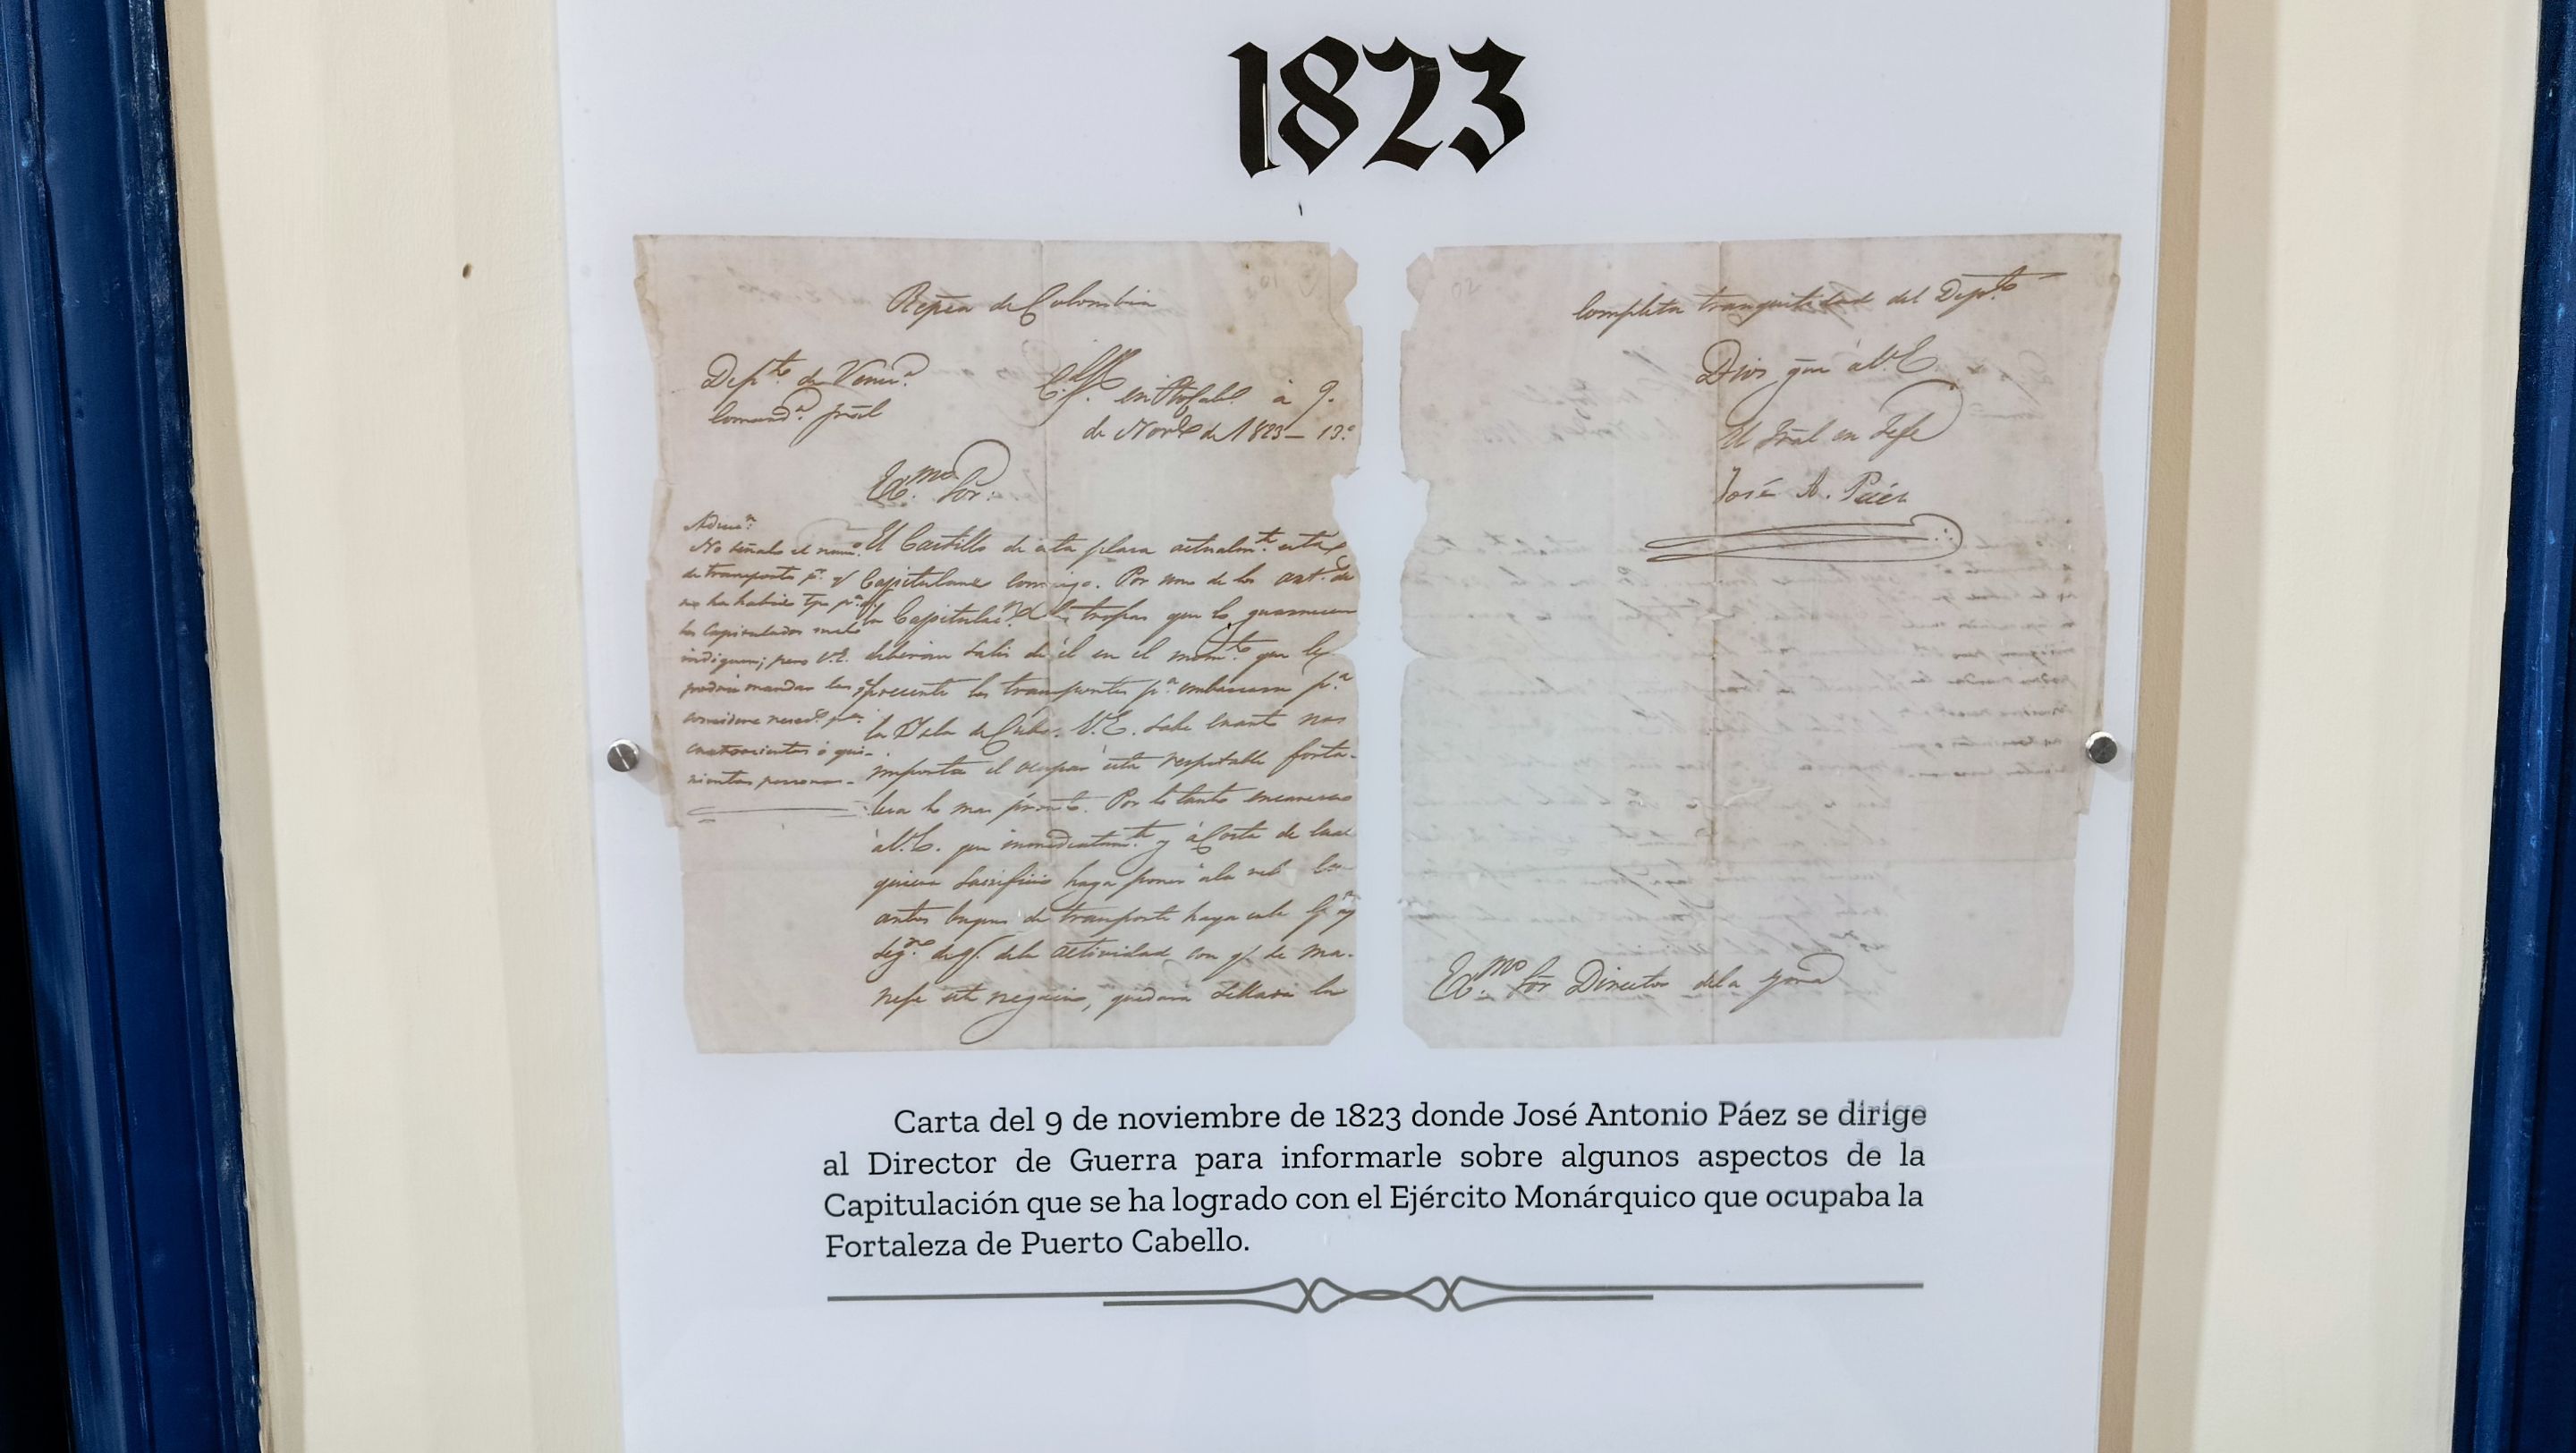 1823
Repca de Colombia
Depto. de Veneza.
Comanda. gral
en Pto Cabo. à 9.
de Nove de 1823 — 13.º
Exmo. Sor.
No señalo el numo.
de transportes pa. q
no ha habido tpo pa. q
los Capitulados me lo
indiquen; pero V.E.
podrá mandar los q
considere necesos. pa.
cuatrocientas ó qui-
nientas personas.
El Castillo de esta plaza actualmte. esta
Capitulando conmigo. Por uno de los arts. de
la Capitulacn. las tropas que lo guarnecen
deberan salir de él en el momto. que les
presente los transportes pa. embarcarse pa.
la Isla de Cuba. V.E. sabe cuanto nos
importa el ocupar esta respetable forta-
leza lo mas pronto. Por lo tanto encarezco
à V.E. que inmediatamte. y à Costa de cual
quiera Sacrificio haga poner à la vela
buques de transporte haya
de q. de la actividad con q. se ma-
neje este negocio, quedará sellada la
completa tranquilidad del Depto.
Dios gue à V.E.
El Gral en Jefe
José A. Páez
Exmo. Sor Director de la grra
Carta del 9 de noviembre de 1823 donde José Antonio Páez se dirige
al Director de Guerra para informarle sobre algunos aspectos de la
Capitulación que se ha logrado con el Ejército Monárquico que ocupaba la
Fortaleza de Puerto Cabello.